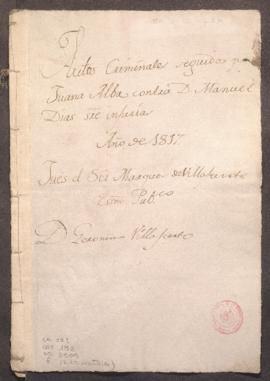 Autos Criminales seguidos p.r
Juana Alba contra D. Manuel
Dias sre injuria
Año de 1817.
Jues el Sor Marques de Villafuerte
Esno Pubco
D. Geronimo Villafuerte